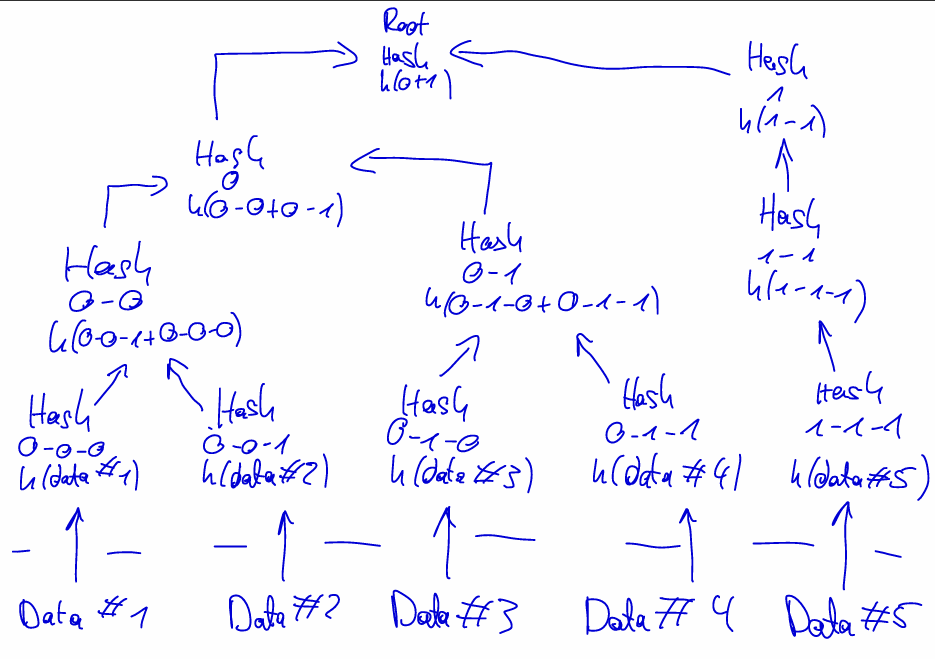 Root
Hash
h(0+1)
Hash
1
h(1-1)
Hash
0
h(0-0+0-1)
Hash
1-1
h(1-1-1)
Hash
0-0
h(0-0-1+0-0-0)
Hash
0-1
h(0-1-0+0-1-1)
Hash
0-0-0
h(data #1)
Hash
0-0-1
h(data #2)
Hash
0-1-0
h(data #3)
Hash
0-1-1
h(data #4)
Hash
1-1-1
h(data #5)
Data #1
Data #2
Data #3
Data # 4
Data #5